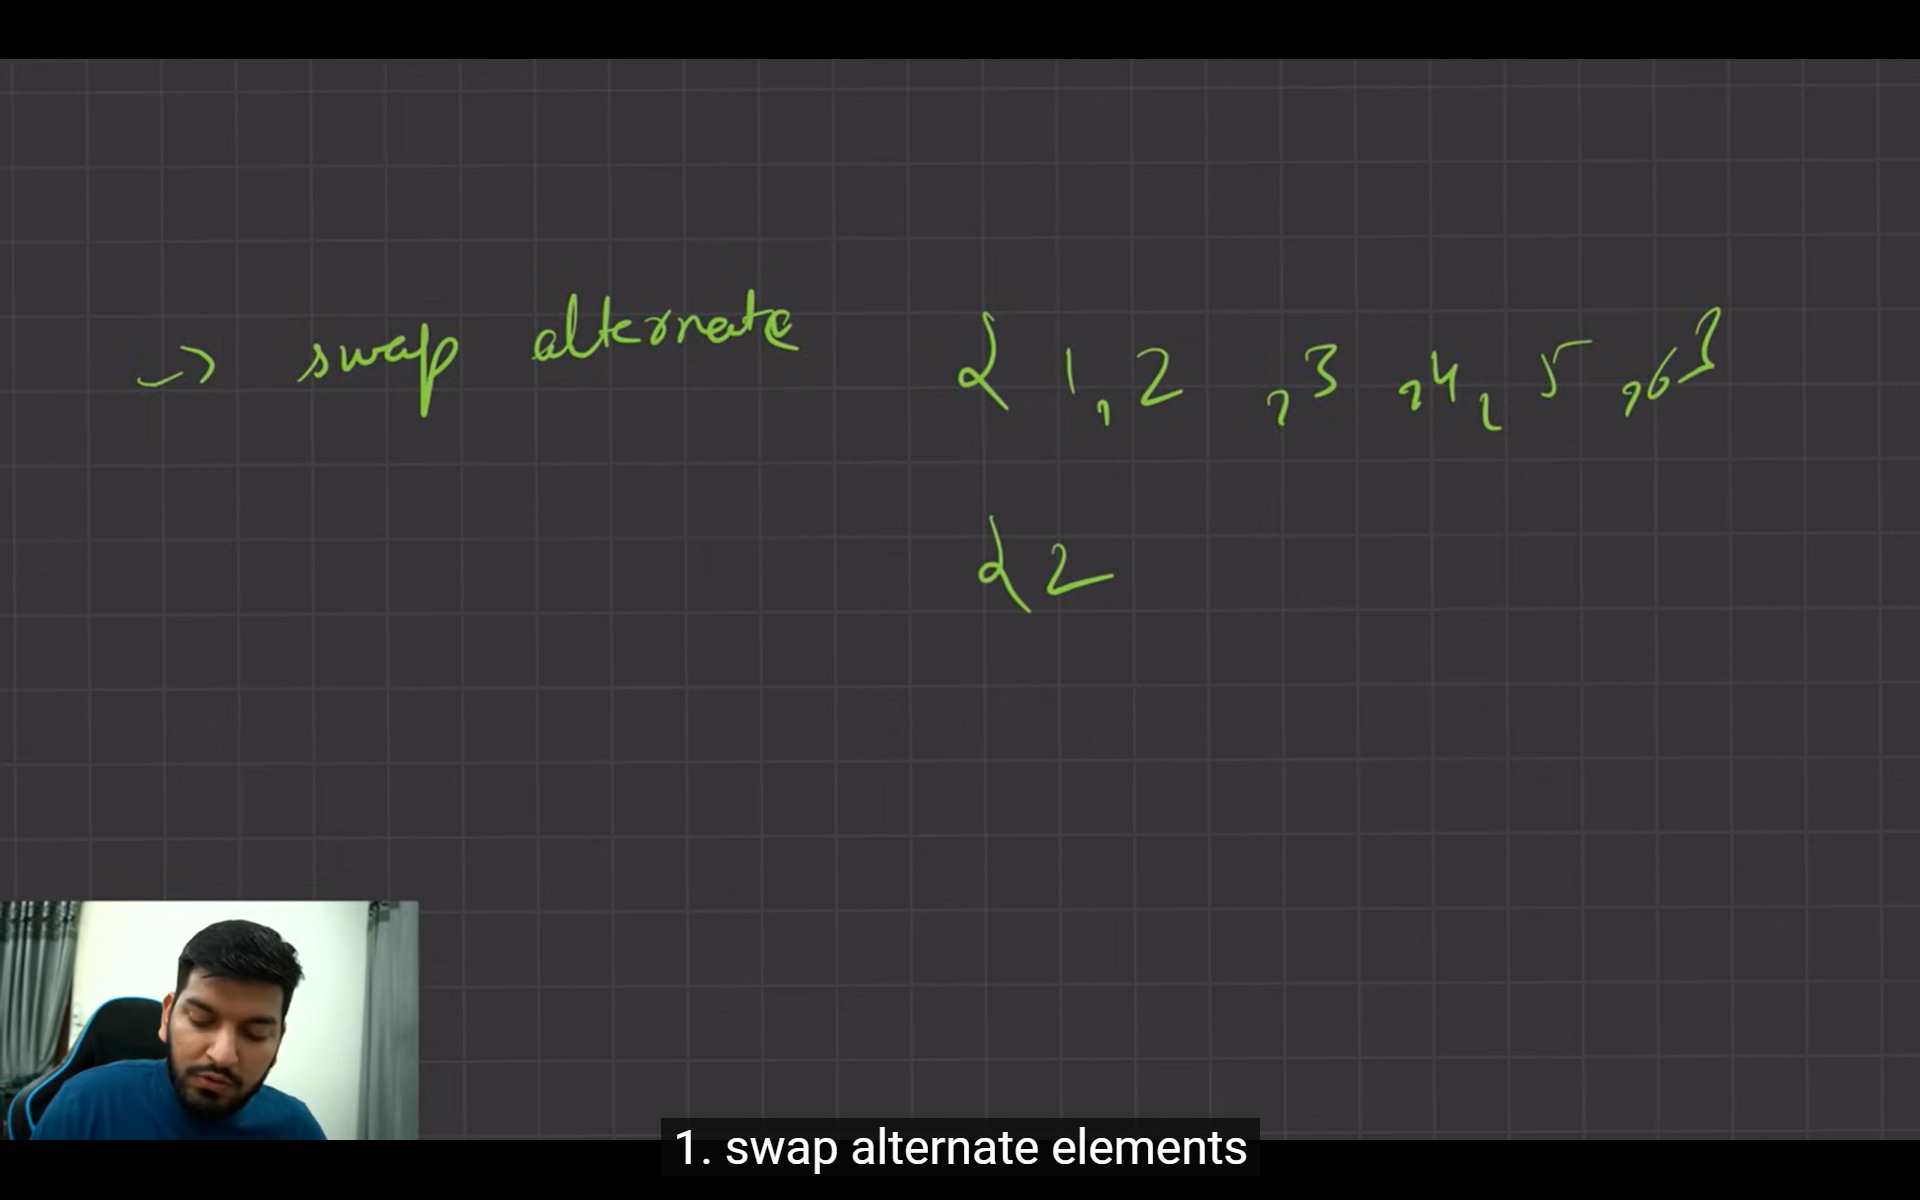 -> swap alternate { 1, 2, 3, 4, 5, 6 }
{ 2
1. swap alternate elements